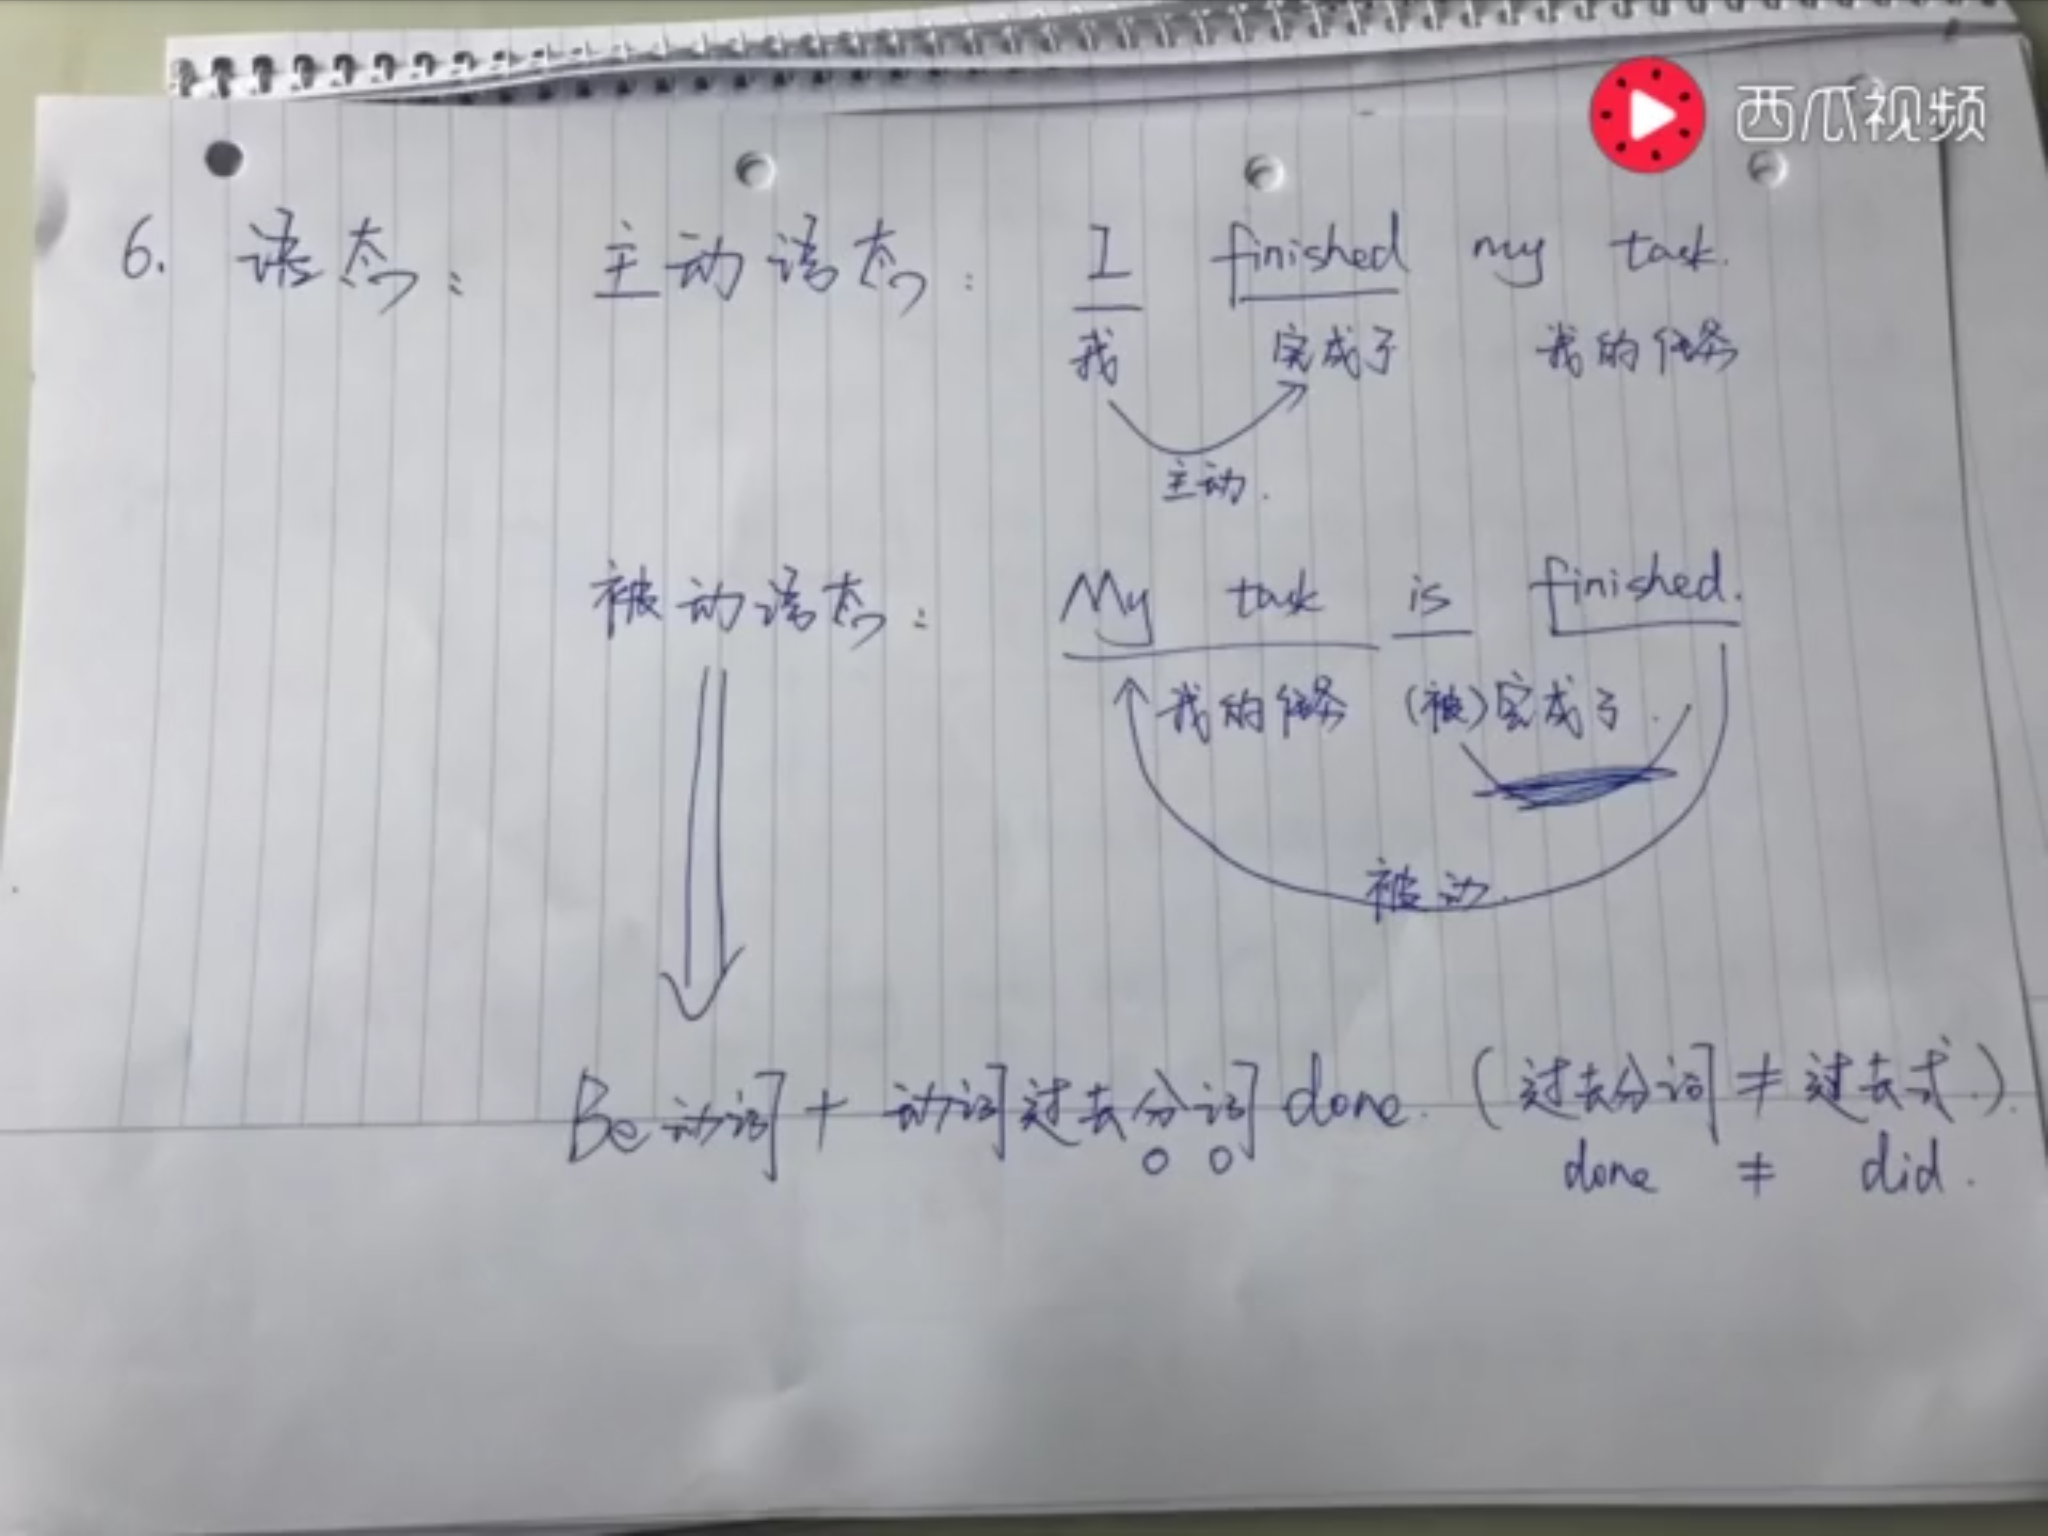 西瓜视频
6. 语态: 主动语态: I finished my task.
我 完成了 我的任务
主动.
被动语态: My task is finished.
我的任务 (被)完成了.
被动.
Be动词 + 动词过去分词 done. (过去分词 ≠ 过去式.).
done ≠ did.